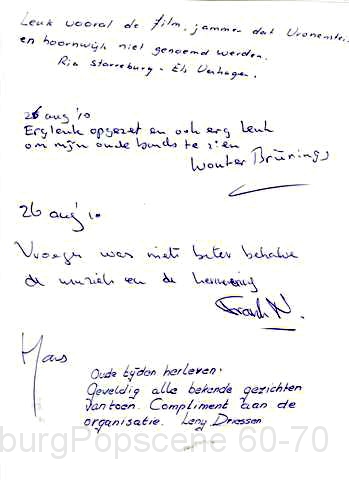 Leuk vooral de film. jammer dat Vronenstein
en hoornwijk niet genoemd werden.
Ria Starreburg - Els Verhagen.
26 aug '10
Erg leuk opgezet en ook erg leuk
om mijn oude bands te zien
Wouter Brünings
26 aug '10
Vroeger was niets beter behalve
de muziek en de herinnering
Frank N.
Hans
Oude tijden herleven.
Geweldig alle bekende gezichten
van toen. Compliment aan de
organisatie. Leny Driessen
burgPopscene 60-70